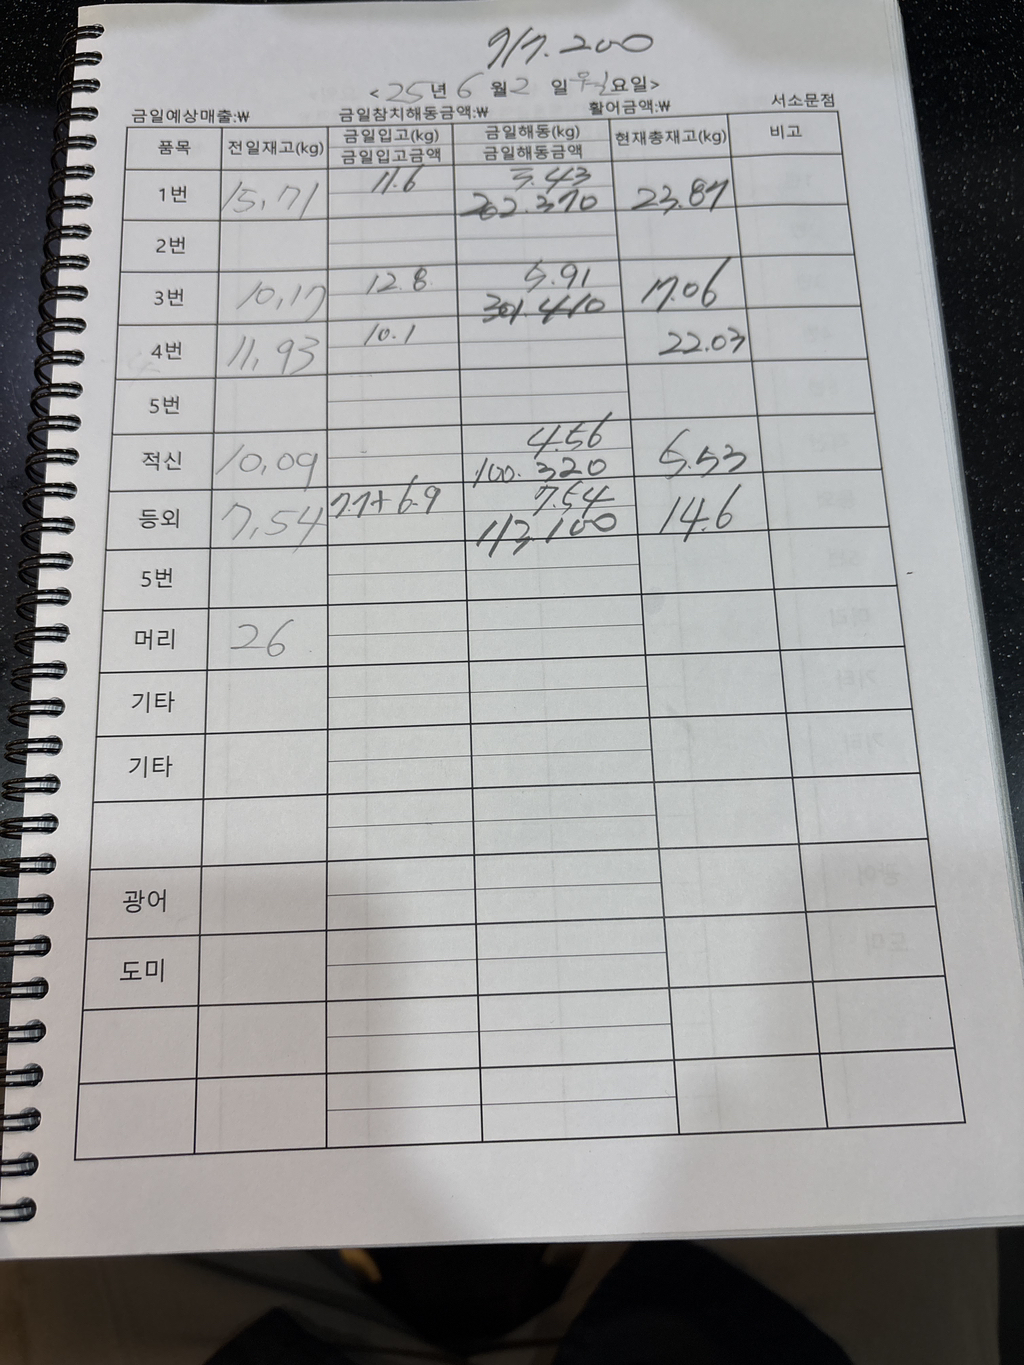 717.200
<25년 6월 2일 월요일>
금일예상매출:₩ 금일참치해동금액:₩ 활어금액:₩ 서소문점
품목 전일재고(kg) 금일입고(kg) 금일해동(kg) 현재총재고(kg) 비고
금일입고금액 금일해동금액
1번 15,71 11.6 3.43 23.87
202.370
2번
3번 10,17 12.8 5.91 17.06
301.410
4번 11,93 10.1 22.03
5번
적신 10,09 4.56 5.53
100.320
등외 7,54 7.7+6.9 7.54 14.6
113.100
5번
머리 26
기타
기타
광어
도미